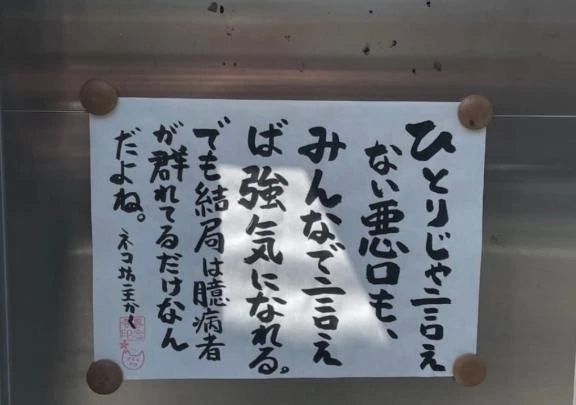 ひとりじゃ言え
ない悪口も、
みんなで言え
ば強気になれる。
でも結局は臆病者
が群れてるだけなん
だよね。
ネコ坊主かく